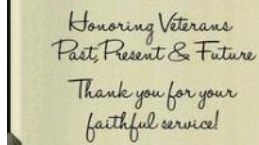 Honoring Veterans
Past, Present & Future
Thank you for your
faithful service!